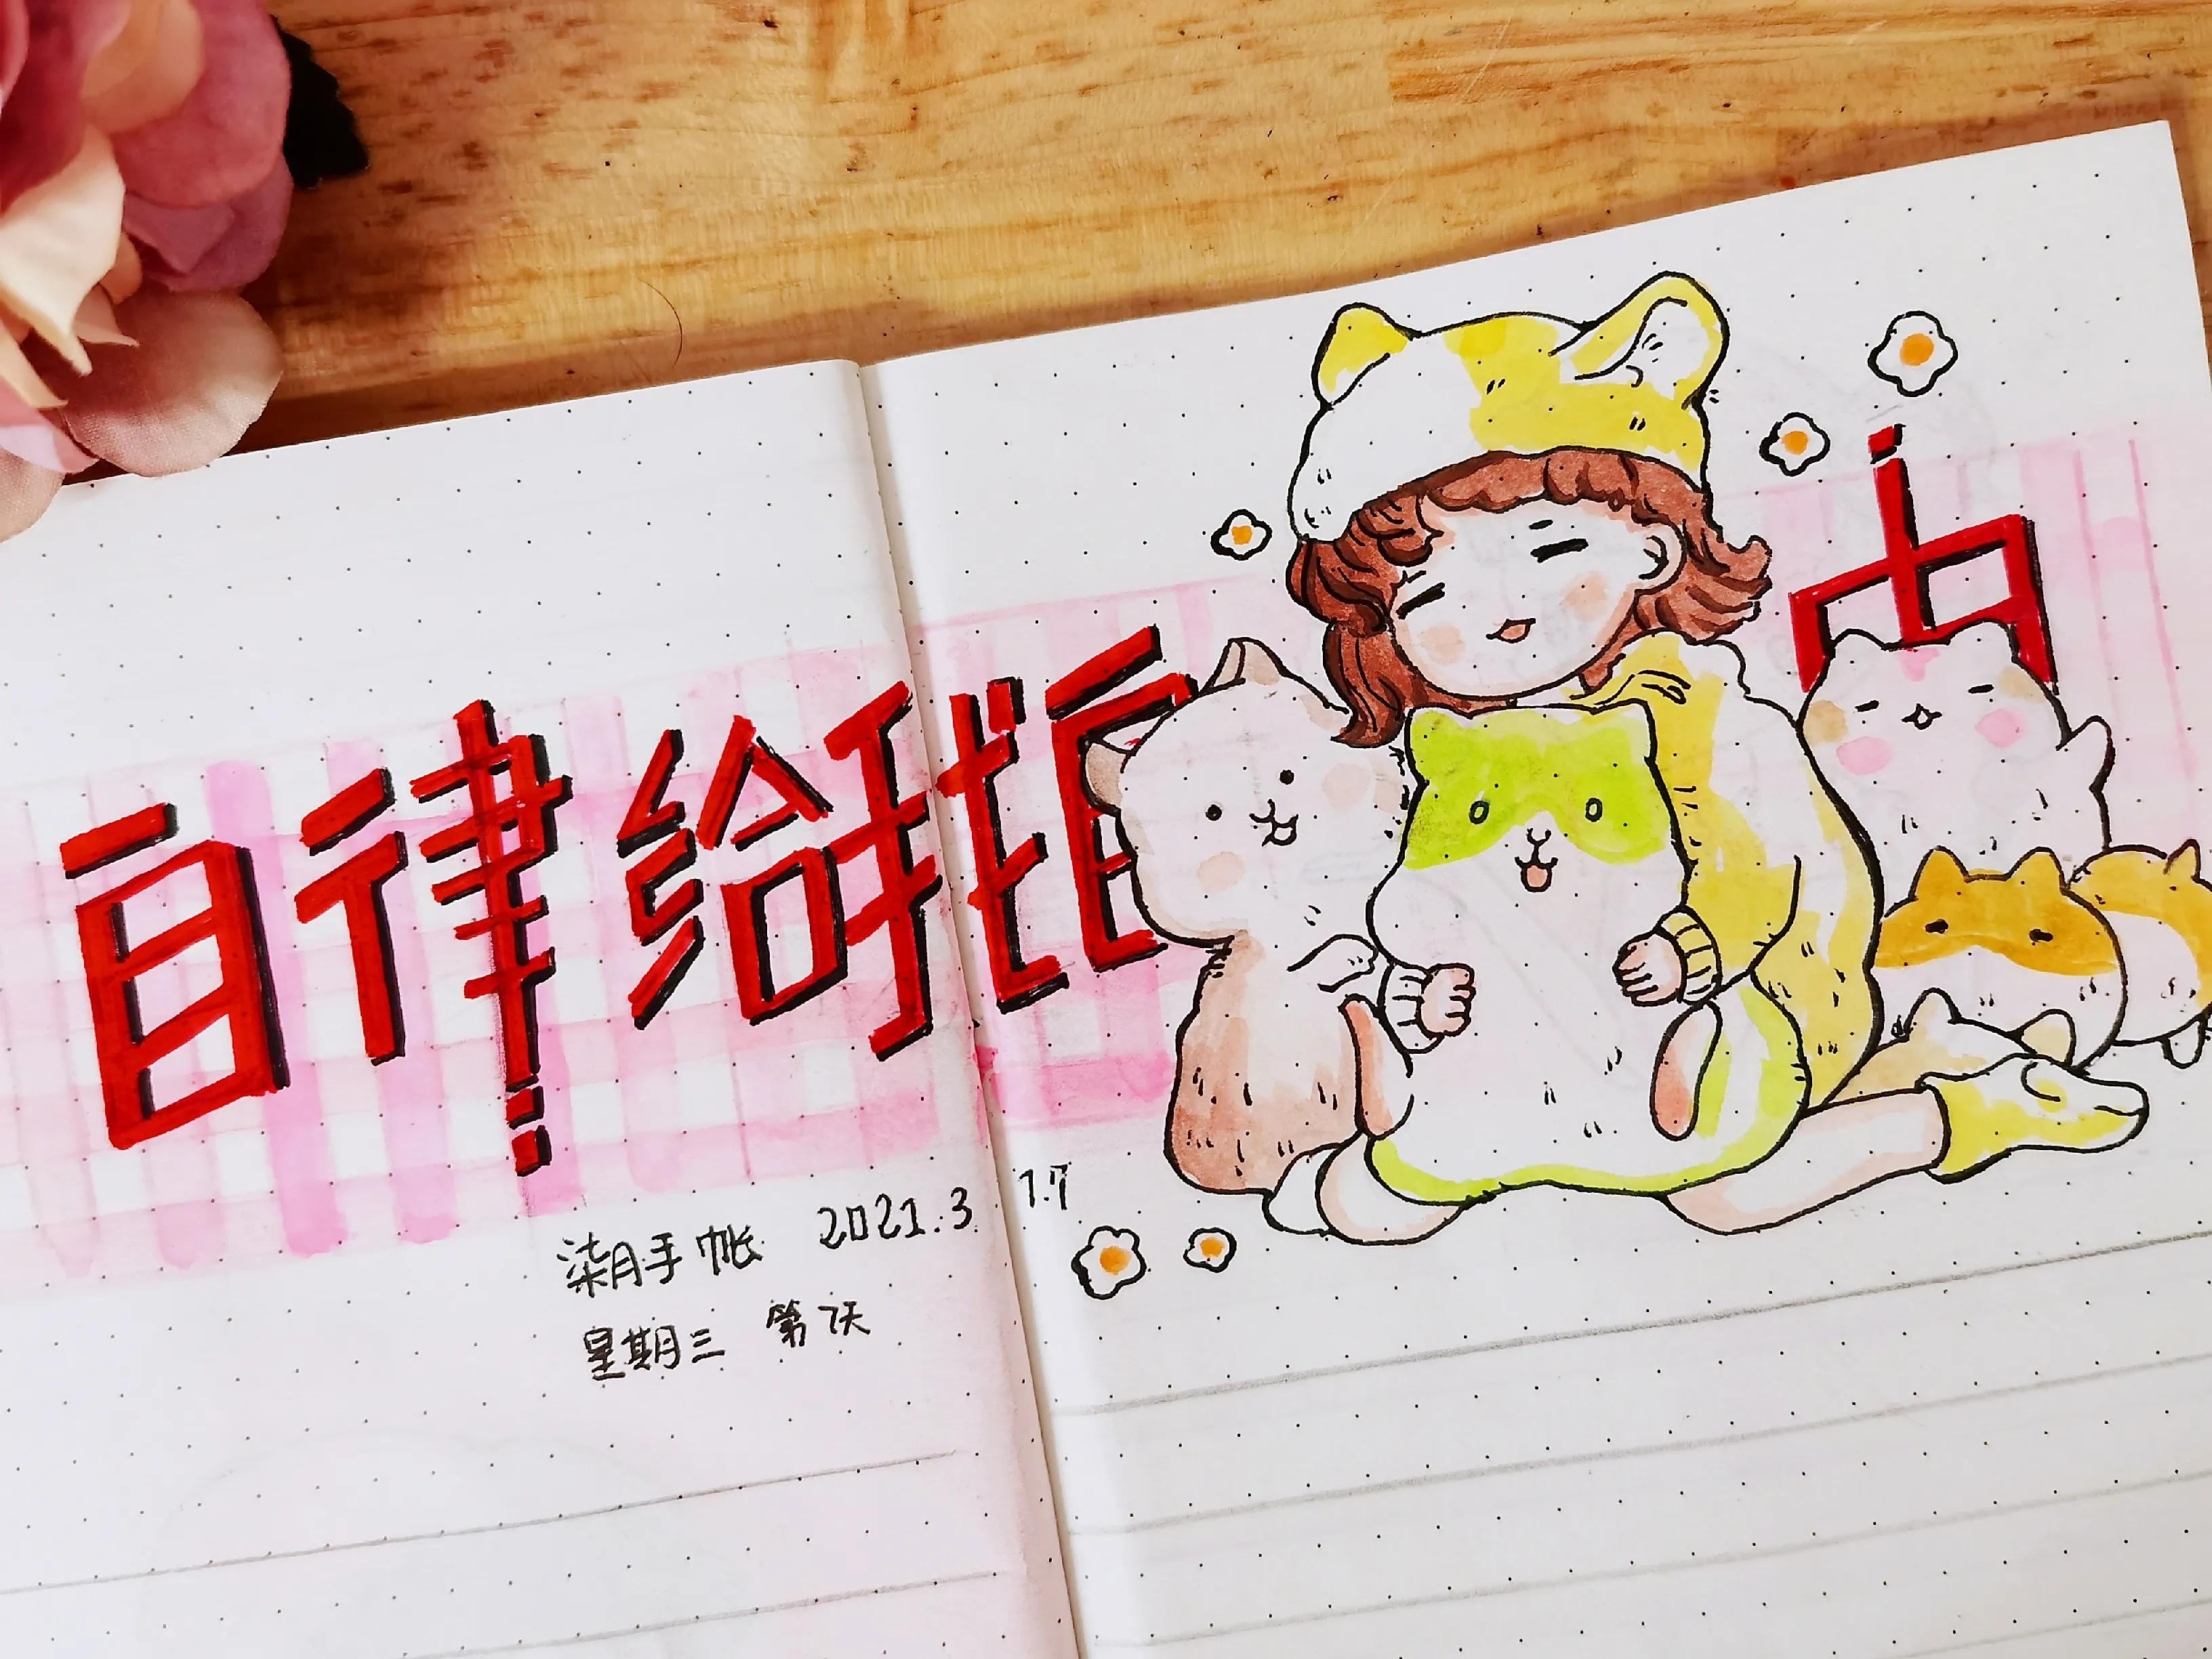 自律给我自由
柒月手帐 2021.3.17
星期三 第7天